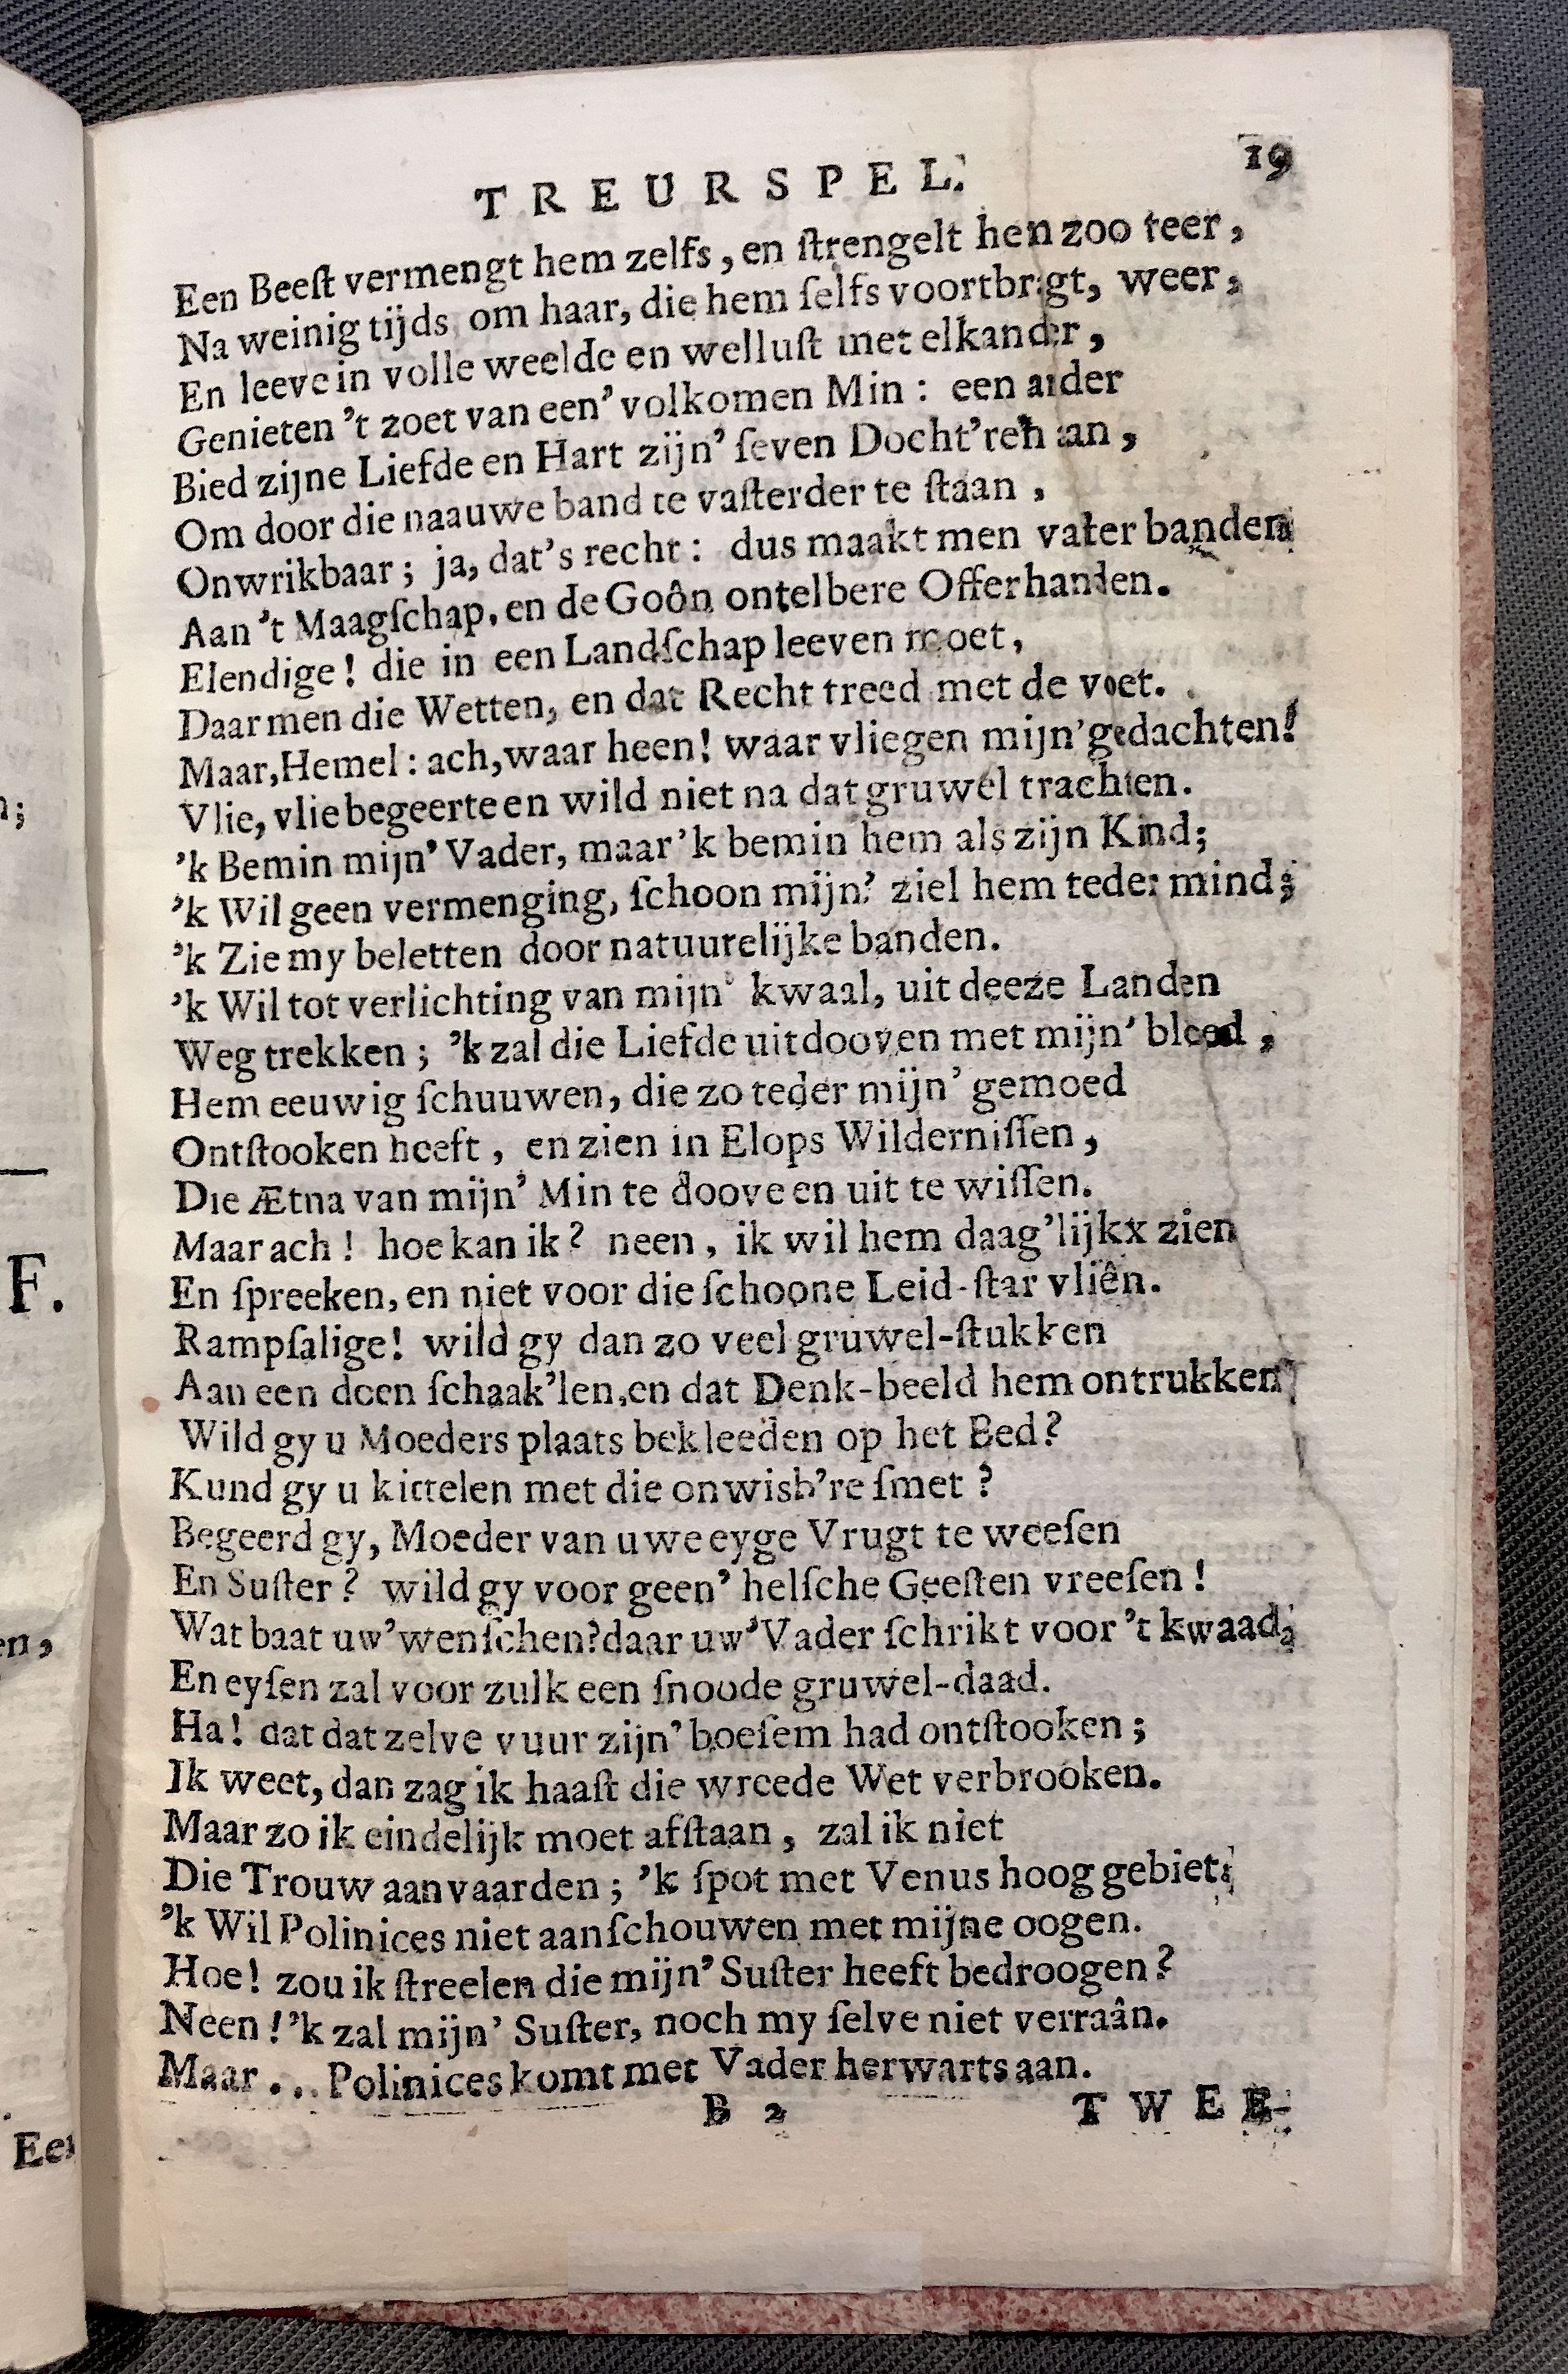 TREURSPEL. 19
Een Beeſt vermengt hem zelfs, en ſtrengelt hen zoo teer,
Na weinig tijds om haar, die hem ſelfs voortbragt, weer,
En leeve in volle weelde en welluſt met elkander,
Genieten 't zoet van een' volkomen Min: een ander
Bied zijne Liefde en Hart zijn' ſeven Docht'ren aan,
Om door die naauwe band te vaſter der te ſtaan,
Onwrikbaar; ja, dat's recht: dus maakt men vaſter banden
Aan 't Maagſchap, en de Goôn ontelbere Offerhanden.
Elendige! die in een Landſchap leeven moet,
Daar men die Wetten, en dat Recht treed met de voet.
Maar, Hemel: ach, waar heen! waar vliegen mijn' gedachten!
Vlie, vlie begeerte en wild niet na dat gruwel trachten.
'k Bemin mijn' Vader, maar 'k bemin hem als zijn Kind;
'k Wil geen vermenging, ſchoon mijn' ziel hem teder mind;
'k Zie my beletten door natuurelijke banden.
'k Wil tot verlichting van mijn' kwaal, uit deeze Landen
Weg trekken; 'k zal die Liefde uitdooven met mijn' bloed,
Hem eeuwig ſchuuwen, die zo teder mijn' gemoed
Ontſtooken heeft, en zien in Elops Wilderniſſen,
Die Ætna van mijn' Min te doove en uit te wiſſen.
Maar ach! hoe kan ik? neen, ik wil hem daag'lijkx zien
En ſpreeken, en niet voor die ſchoone Leid-ſtar vliên.
Rampſalige! wild gy dan zo veel gruwel-ſtukken
Aan een doen ſchaak'len, en dat Denk-beeld hem ontrukken?
Wild gy u Moeders plaats bekleeden op het Bed?
Kund gy u kittelen met die onwisb're ſmet?
Begeerd gy, Moeder van uwe eyge Vrugt te weeſen
En Suſter? wild gy voor geen' helſche Geeſten vreeſen!
Wat baat uw' wenſchen? daar uw' Vader ſchrikt voor 't kwaad,
En eyſen zal voor zulk een ſnoode gruwel-daad.
Ha! dat dat zelve vuur zijn' boeſem had ontſtooken;
Ik weet, dan zag ik haaſt die wreede Wet verbrooken.
Maar zo ik eindelijk moet afſtaan, zal ik niet
Die Trouw aanvaarden; 'k ſpot met Venus hoog gebiet;
'k Wil Polinices niet aanſchouwen met mijne oogen.
Hoe! zou ik ſtreelen die mijn' Suſter heeft bedroogen?
Neen! 'k zal mijn' Suſter, noch my ſelve niet verraân.
Maar... Polinices komt met Vader herwarts aan.
B 2 TWEE-
n;
F.
en,
Een